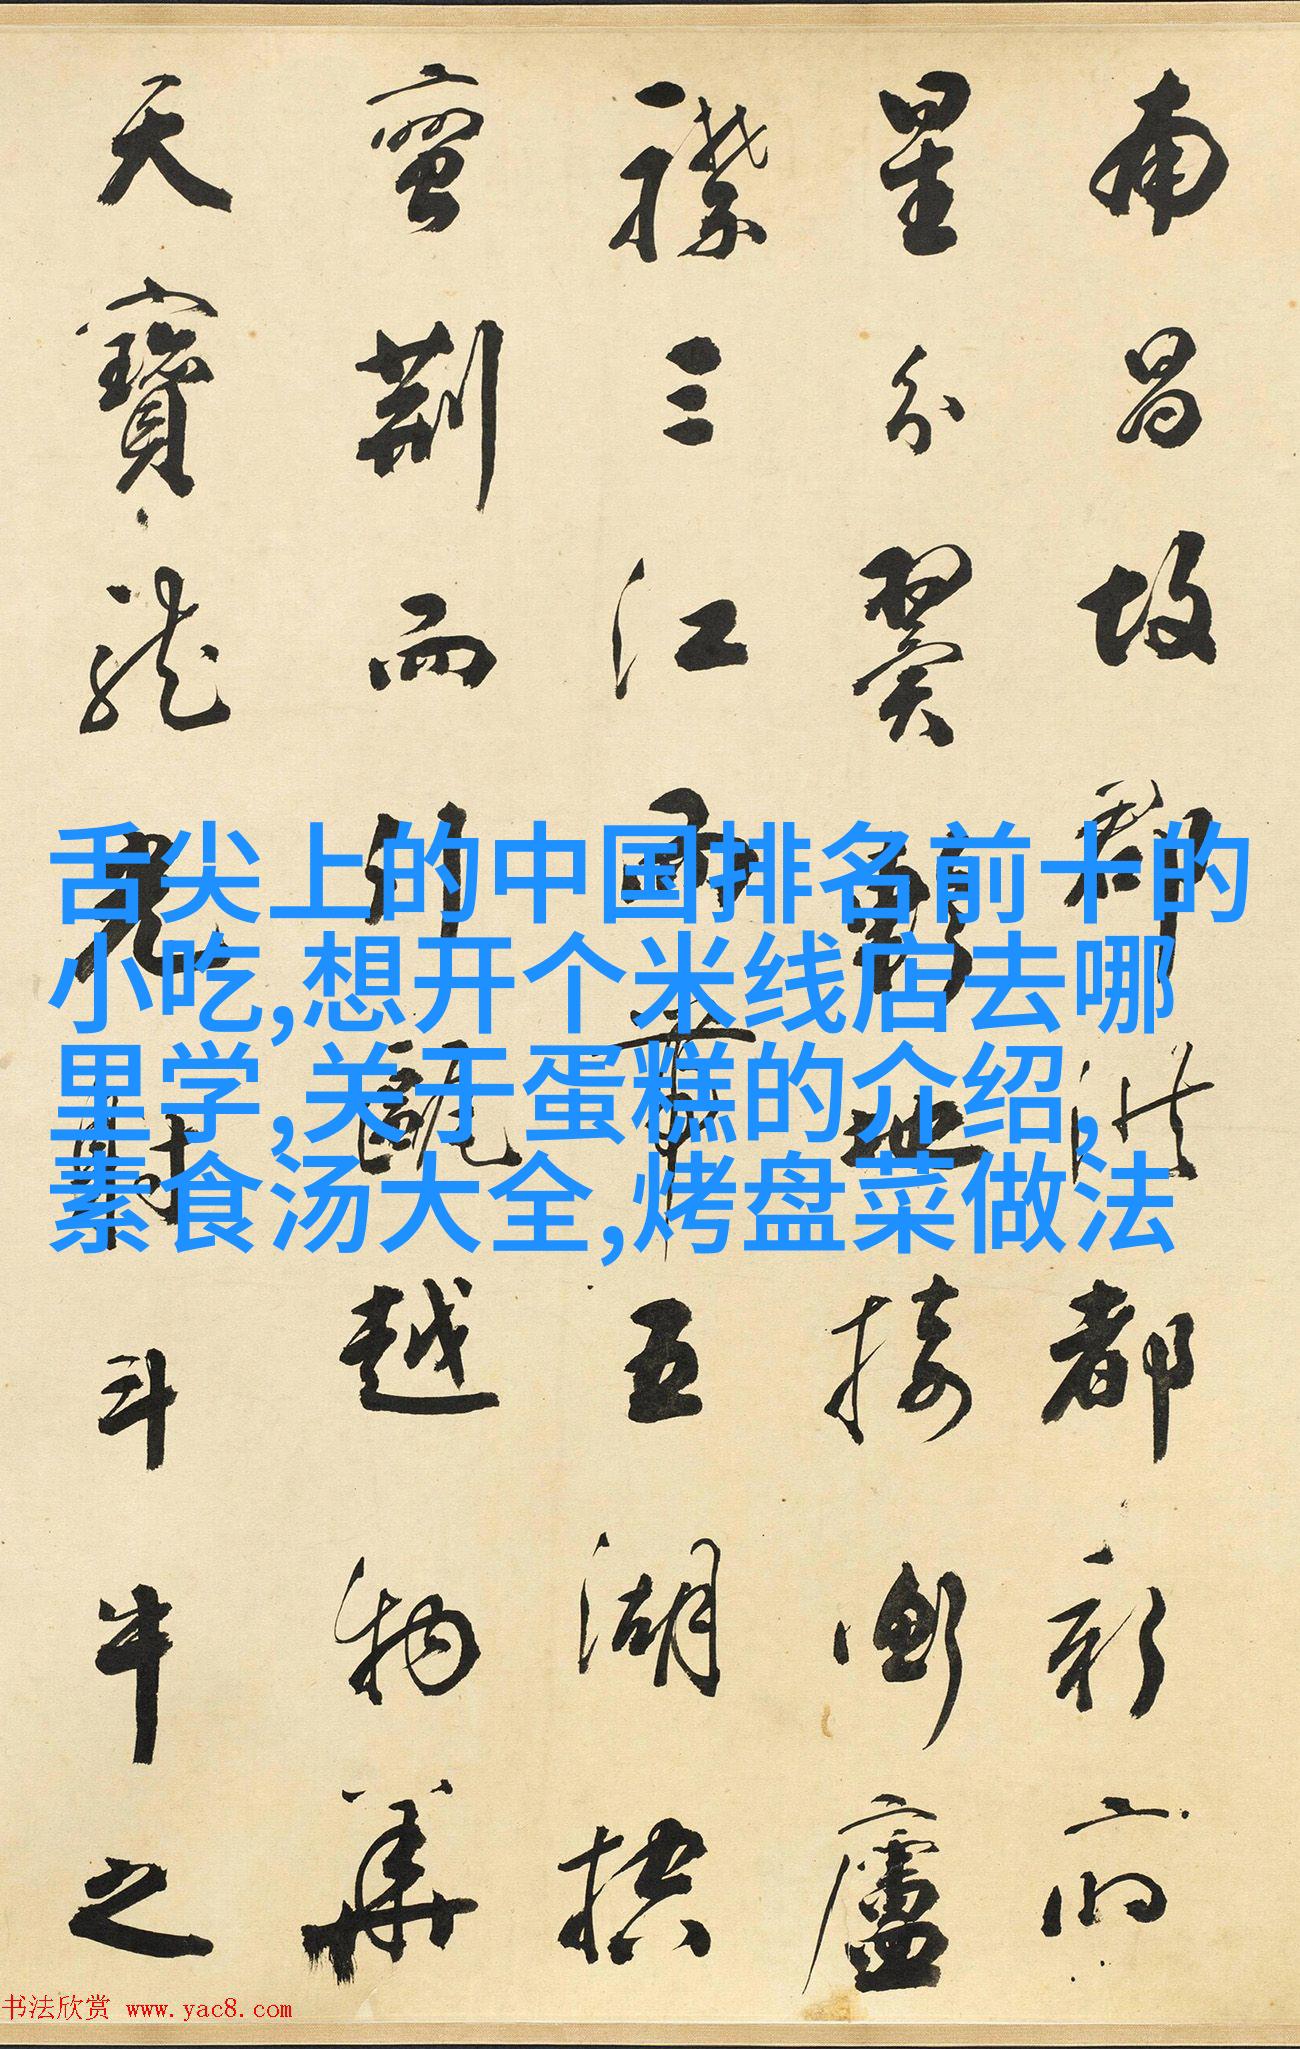 南昌故郡洪都新府
星分翼軫地接衡廬
襟三江而帶五湖控
蠻荆而引甌越物華
天寶龍光射斗牛之
舌尖上的中国排名前十的
小吃,想开个米线店去哪
里学,关于蛋糕的介绍,
素食汤大全,烤盘菜做法
书法欣赏 www.yac8.com